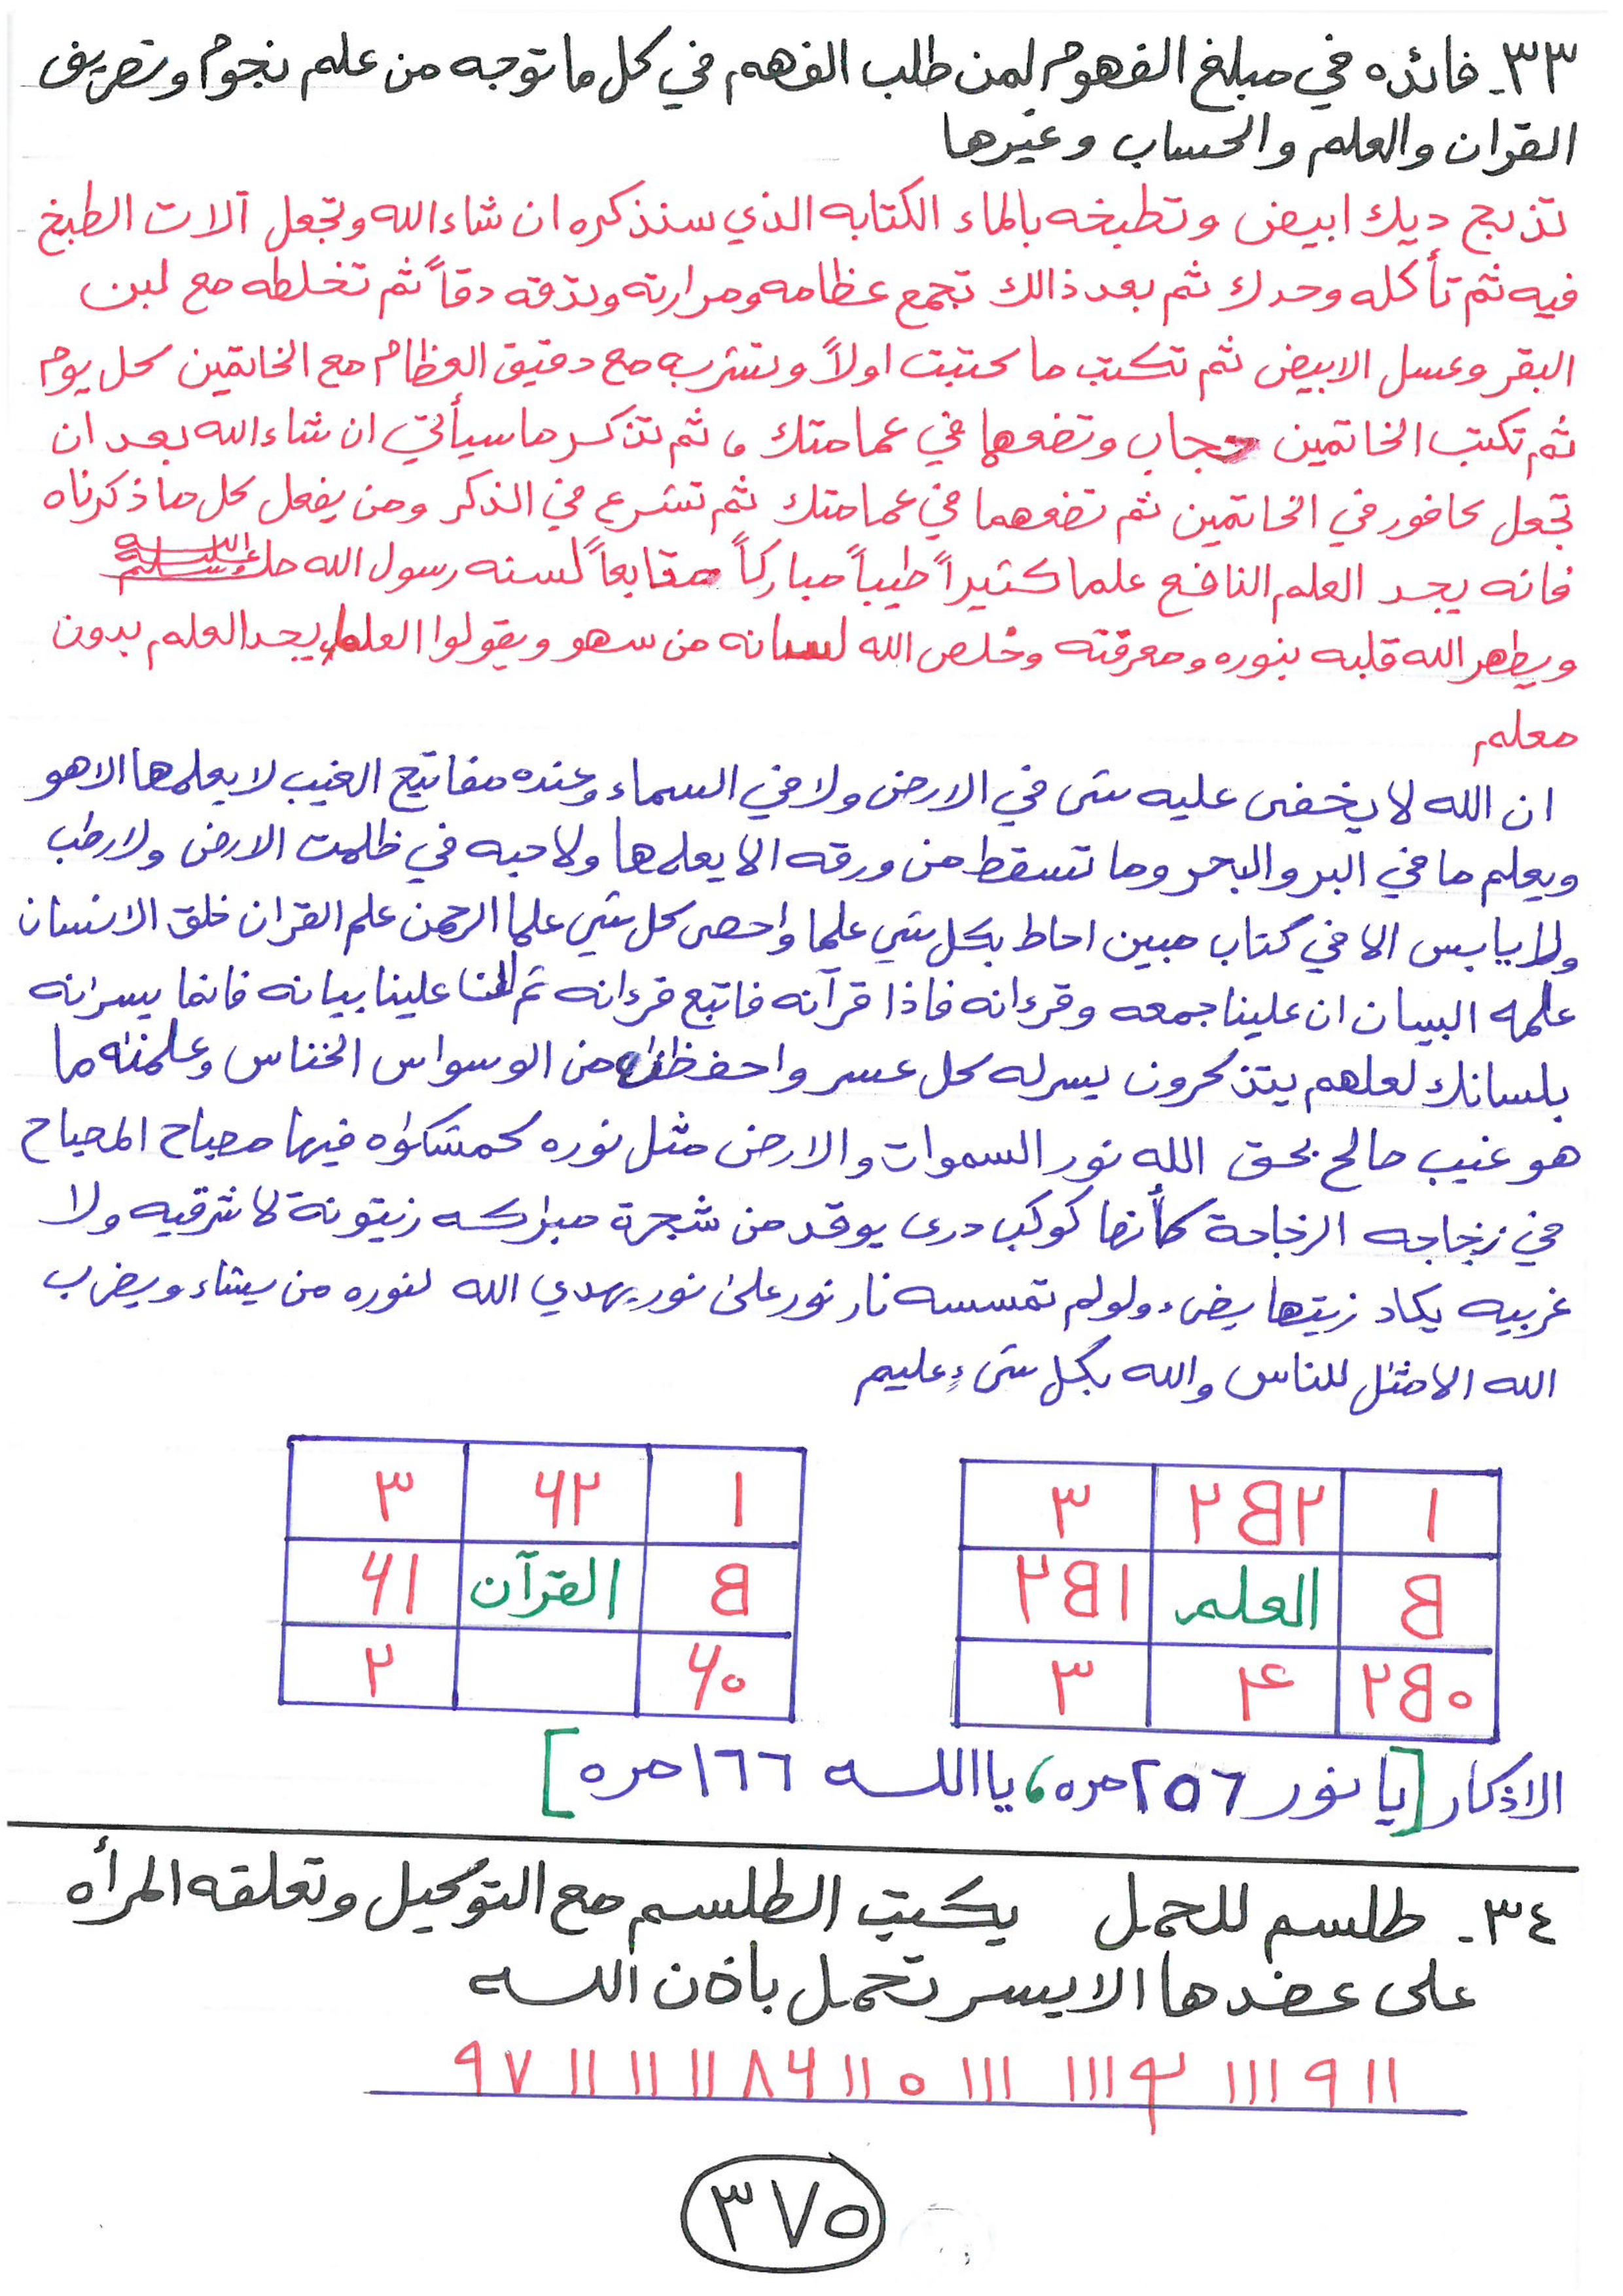 ٣٣- فائده في مبلغ الفهوم لمن طلب الفهم في كل ما توجه من علم نجوم وتصريف
القران والعلم والحساب وغيرها
تذبح ديك ابيض وتطبخه بالماء الكتابه الذي سنذكره ان شاء الله وتجعل آلات الطبخ
فيه ثم تأكله وحدك ثم بعد ذالك تجمع عظامه ومرارته وتدقه دقاً ثم تخلطه مع لبن
البقر وعسل الابيض ثم تكتب ما كتبت اولاً وتشربه مع دقيق العظام مع الخاتمين كل يوم
ثم تكتب الخاتمين حجاب وتضعها في عمامتك ، ثم تذكر ما سيأتي ان شاء الله بعد ان
تجعل كافور في الخاتمين ثم تضعهما في عمامتك ثم تشرع في الذكر ومن يفعل كل ما ذكرناه
فانه يجد العلم النافع علما كثيراً طيباً مباركاً متابعاً لسنه رسول الله صلى الله عليه وسلم
ويطهر الله قلبه بنوره ومعرفته وخلص الله لسانه من سهو ويقولوا العلماء يجد العلم بدون
معلم
ان الله لا يخفى عليه شى في الارض ولا في السماء وعنده مفاتيح الغيب لا يعلمها الا هو
ويعلم ما في البر والبحر وما تسقط من ورقه الا يعلمها ولا حبه في ظلمت الارض ولا رطب
ولا يابس الا في كتاب مبين احاط بكل شي علما واحصى كل شي علما الرحمن علم القران خلق الانسان
علمه البيان ان علينا جمعه وقرءانه فاذا قرآنه فاتبع قرءانه ثم ان علينا بيانه فانما يسرنه
بلسانك لعلهم يتذكرون يسر له كل عسر واحفظه من الوسواس الخناس وعلمنه ما
هو غيب صالح بحق الله نور السموات والارض مثل نوره كمشكوه فيها مصباح المصباح
في زجاجه الزجاجة كأنها كوكب درى يوقد من شجرة مبركه زيتونة لا شرقيه ولا
غربيه يكاد زيتها يضىء ولو لم تمسسه نار نور على نور يهدي الله لنوره من يشاء ويضرب
الله الامثل للناس والله بكل شىءٍ عليم
١ ٢B٢ ٣
B العلم ٢B١
٢B٠ ۴ ٣
١ ۶٢ ٣
B القرآن ۶١
۶٠ ٢
الاذكار [يا نور ٢٥٦ مره ، يا الله ١٦٦ مره]
٣٤- طلسم للحمل يكتب الطلسم مع التوكيل وتعلقه المرأه
على عضدها الايسر تحمل بأذن الله
٩٧ ١١ ١١ ١١ ٨۶ ١١ ٥ ١١١ ١١١ ١١١ ٩ ١١
٣٧٥